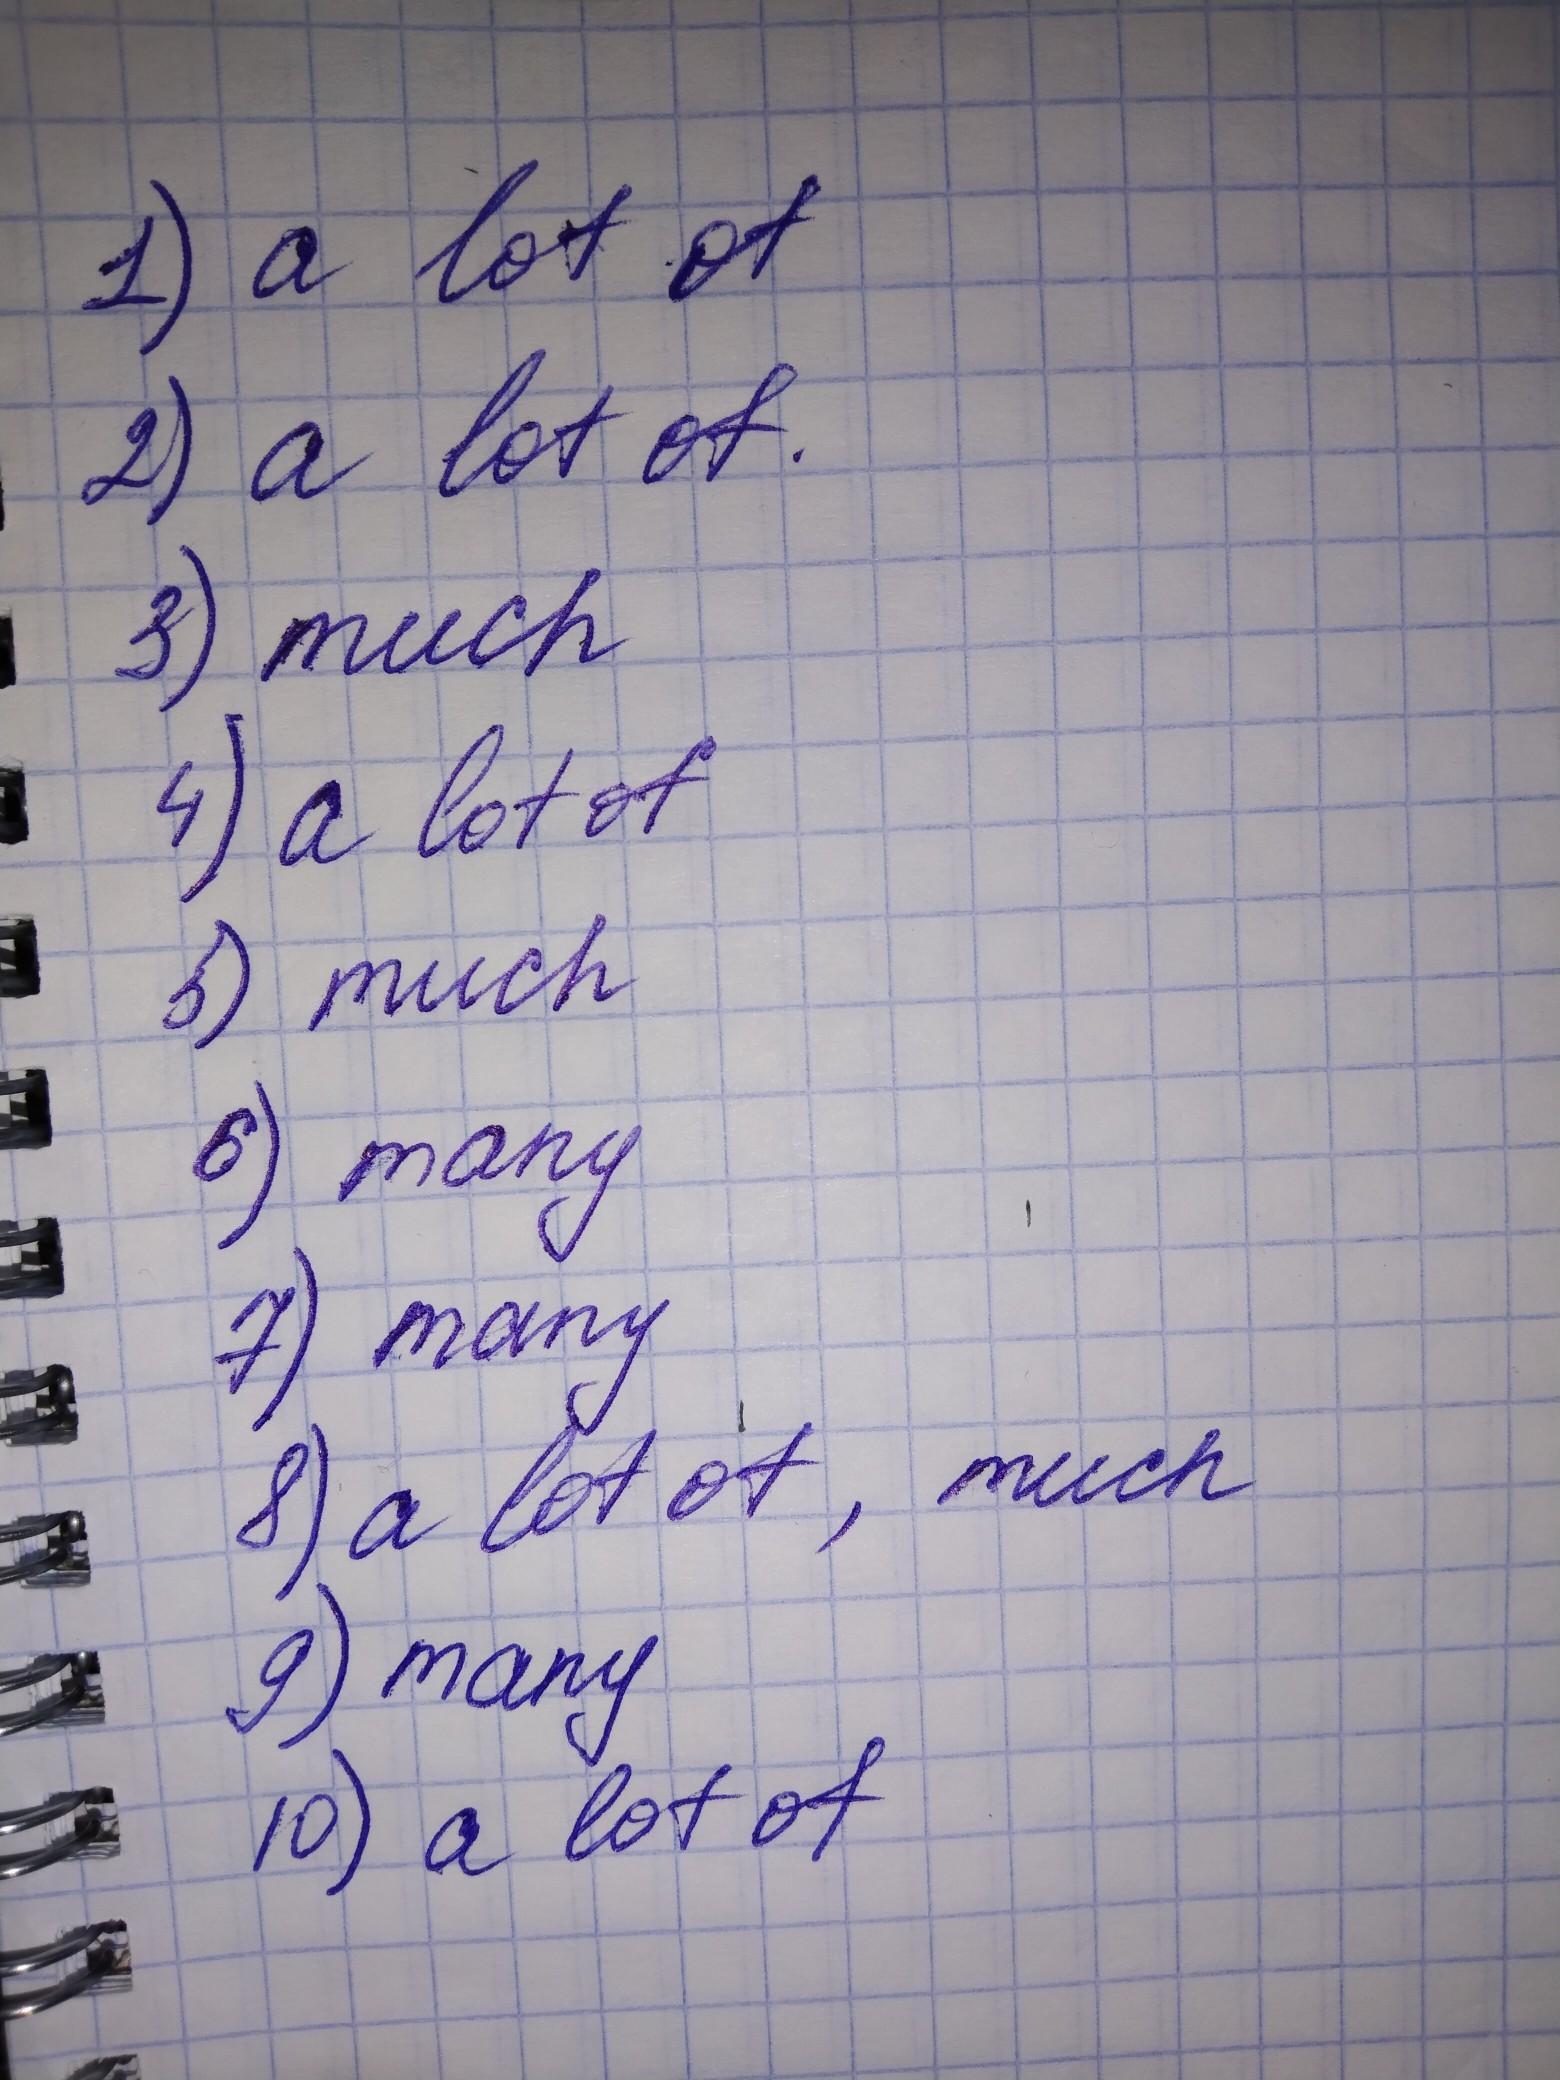 1) a lot of
2) a lot of.
3) much
4) a lot of
5) much
6) many
7) many
8) a lot of, much
9) many
10) a lot of